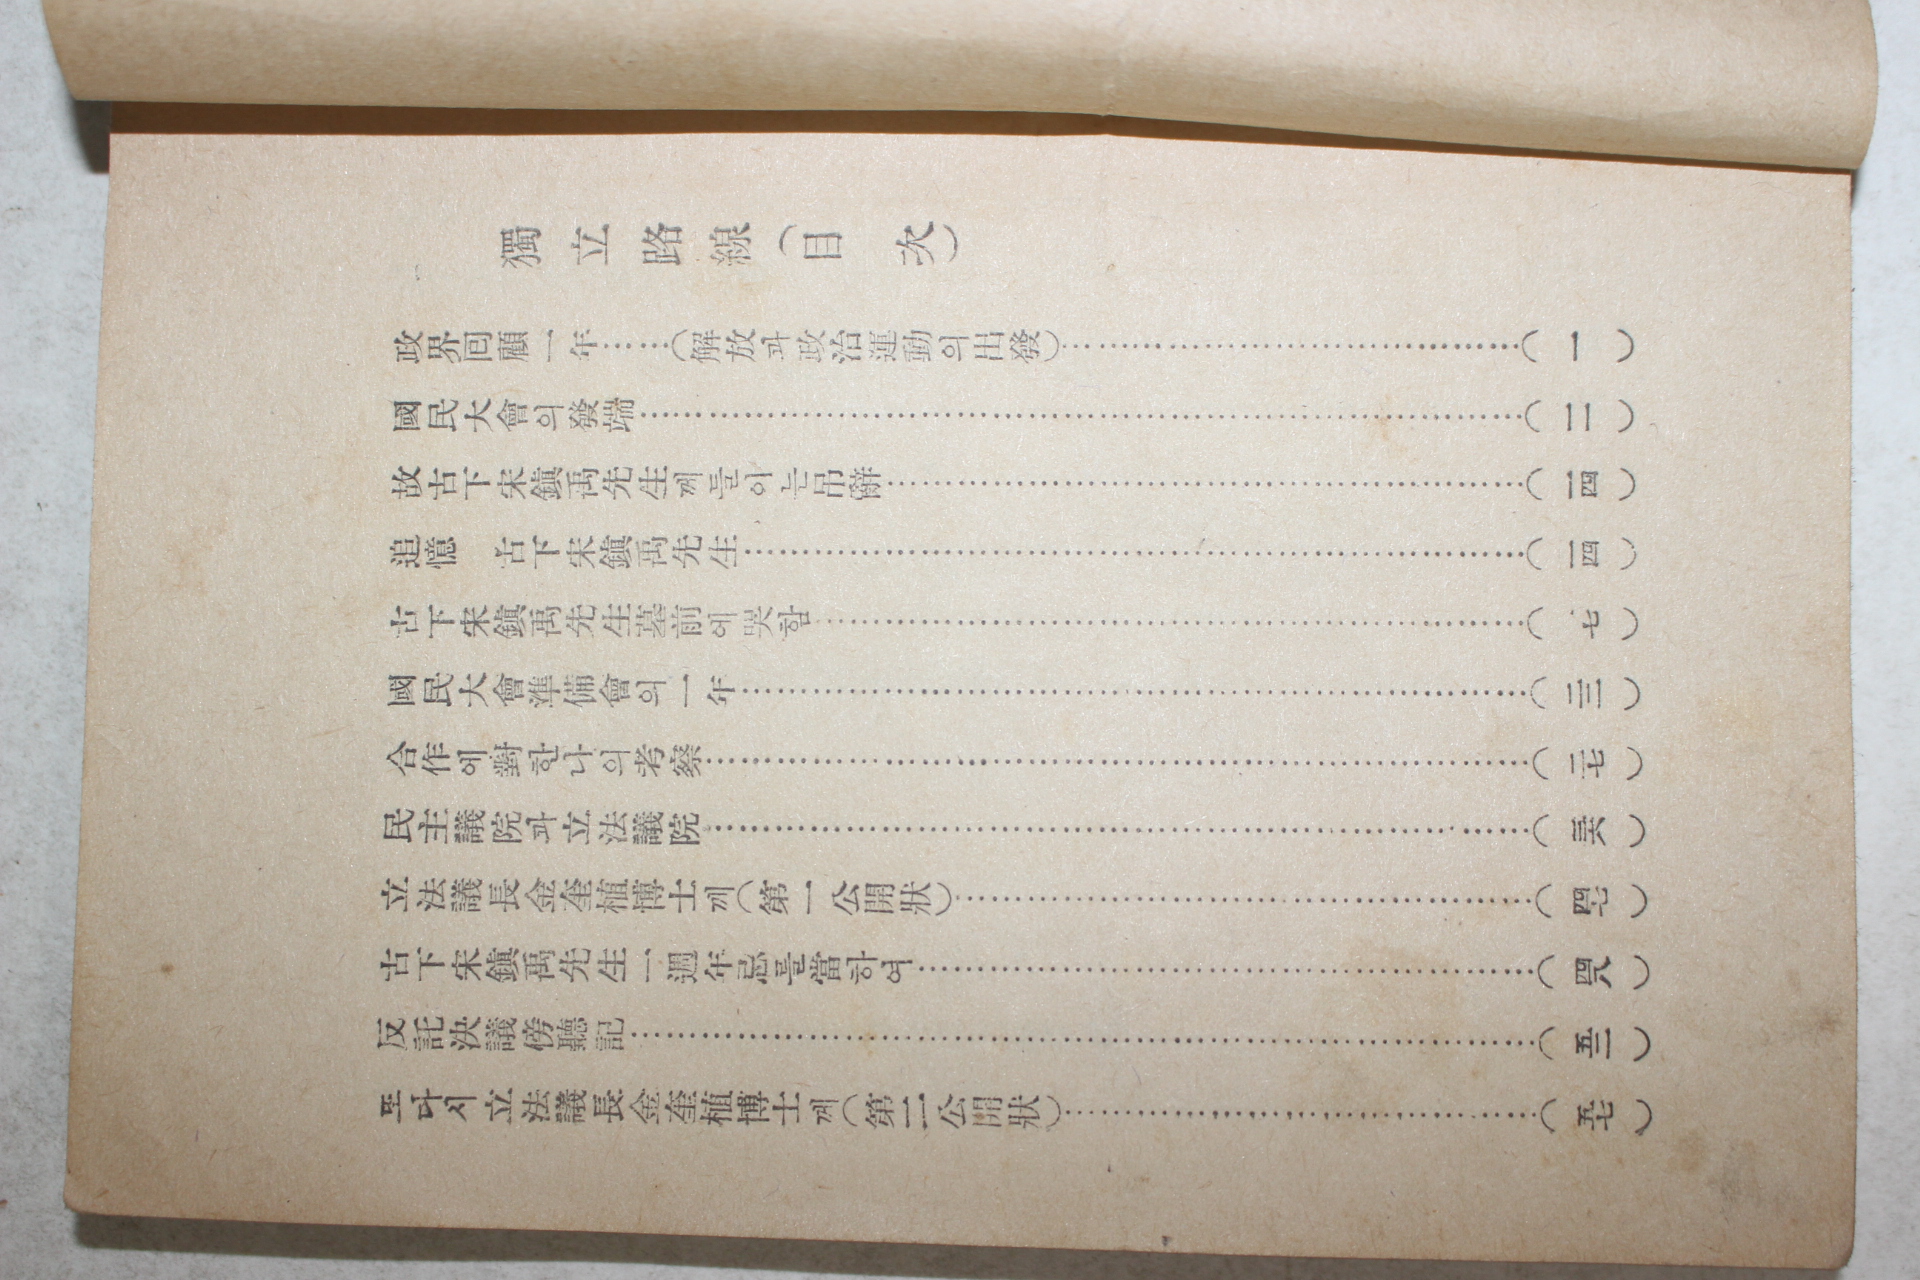 獨立路線(目 次)
政界回顧一年……(解放과政治運動의出發)……(一)
國民大會의發端……(二)
故古下宋鎭禹先生께들이는吊辭……(一四)
追憶 古下宋鎭禹先生……(一四)
古下宋鎭禹先生墓前에哭함……(七)
國民大會準備會의一年……(三)
合作에對한나의考察……(二七)
民主議院과立法議院……(三六)
立法議長金奎植博士께(第一公開狀)……(四七)
古下宋鎭禹先生一週年忌를當하여……(四八)
反託決議傍聽記……(五二)
또다시立法議長金奎植博士께(第二公開狀)……(五七)